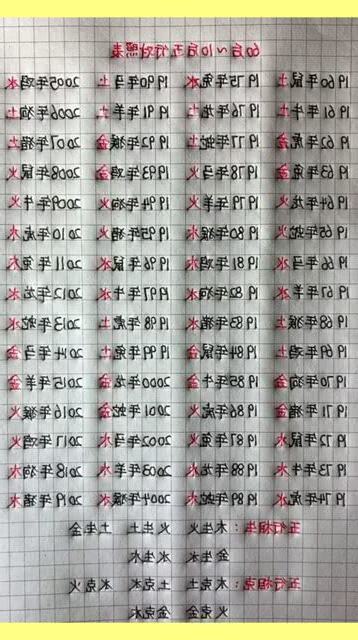 60后~10后五行对照表
1960年鼠土 1975年兔水 1990年马土 2005年鸡水
1961年牛土 1976年龙土 1991年羊土 2006年狗土
1962年虎金 1977年蛇土 1992年猴金 2007年猪土
1963年兔金 1978年马火 1993年鸡金 2008年鼠火
1964年龙火 1979年羊火 1994年狗火 2009年牛火
1965年蛇火 1980年猴木 1995年猪火 2010年虎木
1966年马水 1981年鸡木 1996年鼠水 2011年兔木
1967年羊水 1982年狗水 1997年牛水 2012年龙水
1968年猴土 1983年猪水 1998年虎土 2013年蛇水
1969年鸡土 1984年鼠金 1999年兔土 2014年马金
1970年狗金 1985年牛金 2000年龙金 2015年羊金
1971年猪金 1986年虎火 2001年蛇金 2016年猴火
1972年鼠木 1987年兔火 2002年马木 2017年鸡火
1973年牛木 1988年龙木 2003年羊木 2018年狗木
1974年虎水 1989年蛇木 2004年猴水 2019年猪木
五行相生：木生火 火生土 土生金
金生水 水生木
五行相克：木克土 土克水 水克火
火克金 金克木